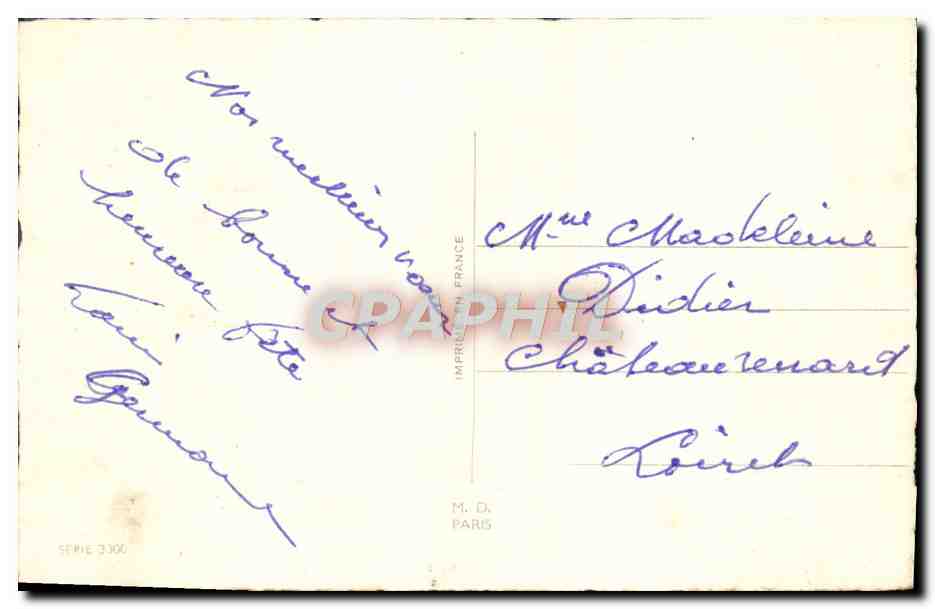 Nos meilleurs voeux
de bonne et
heureuse fête
Germaine
IMPRIMÉ EN FRANCE
CPAPHIL
Mme Madeleine
Didier
Châteaurenard
Loiret
M. D.
PARIS
SÉRIE 3300